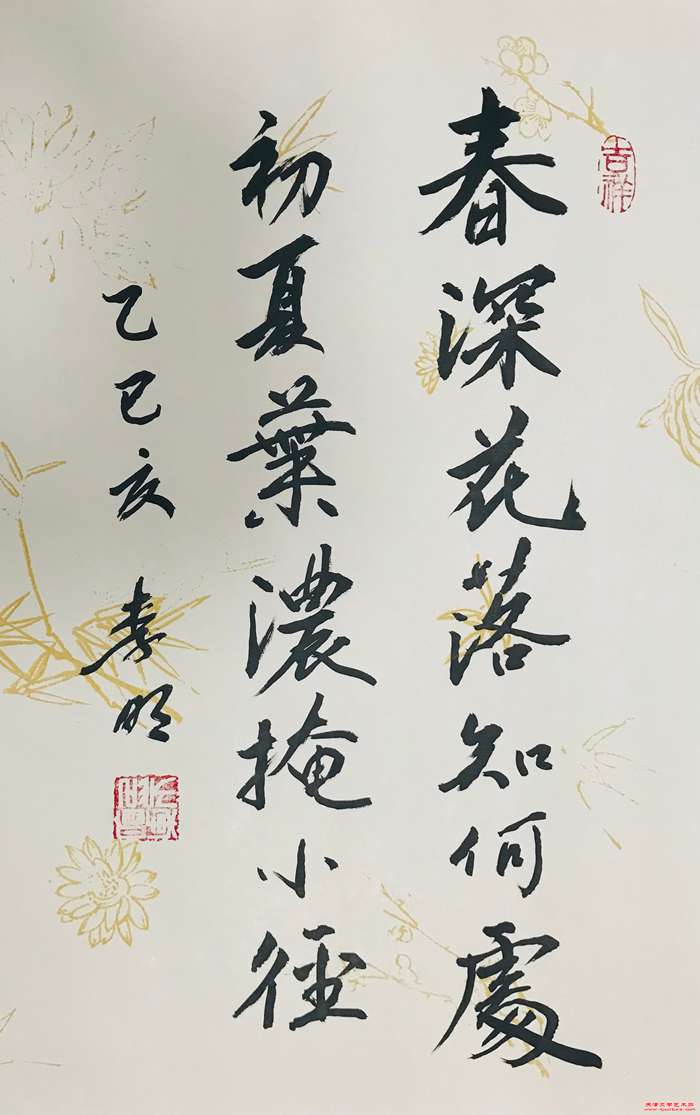 春深花落知何處
初夏葉濃掩小徑
乙巳亥 李明
吉祥